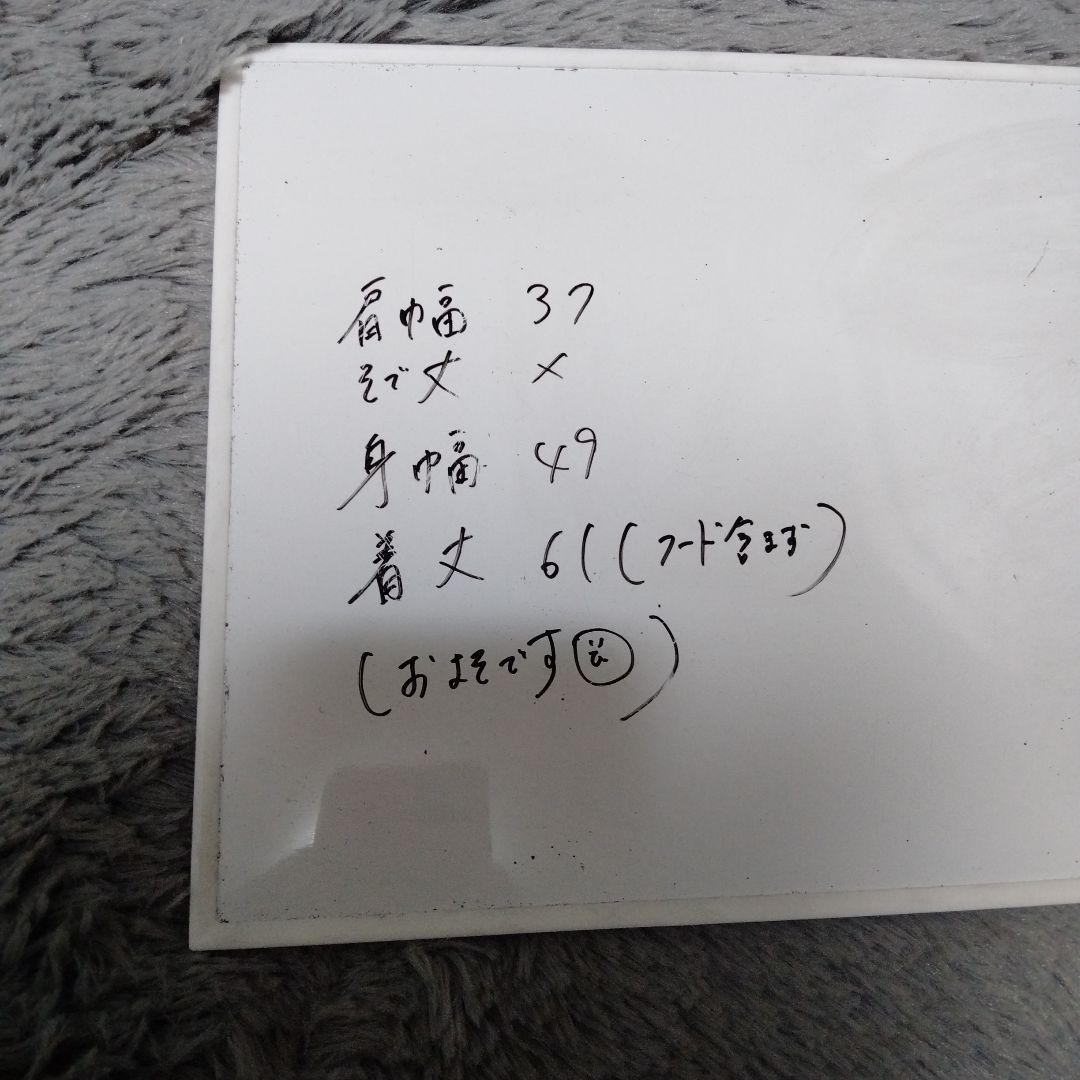 肩巾幅 37
そで丈 ×
身巾幅 49
着丈 61 (フード含まず)
(およそです)